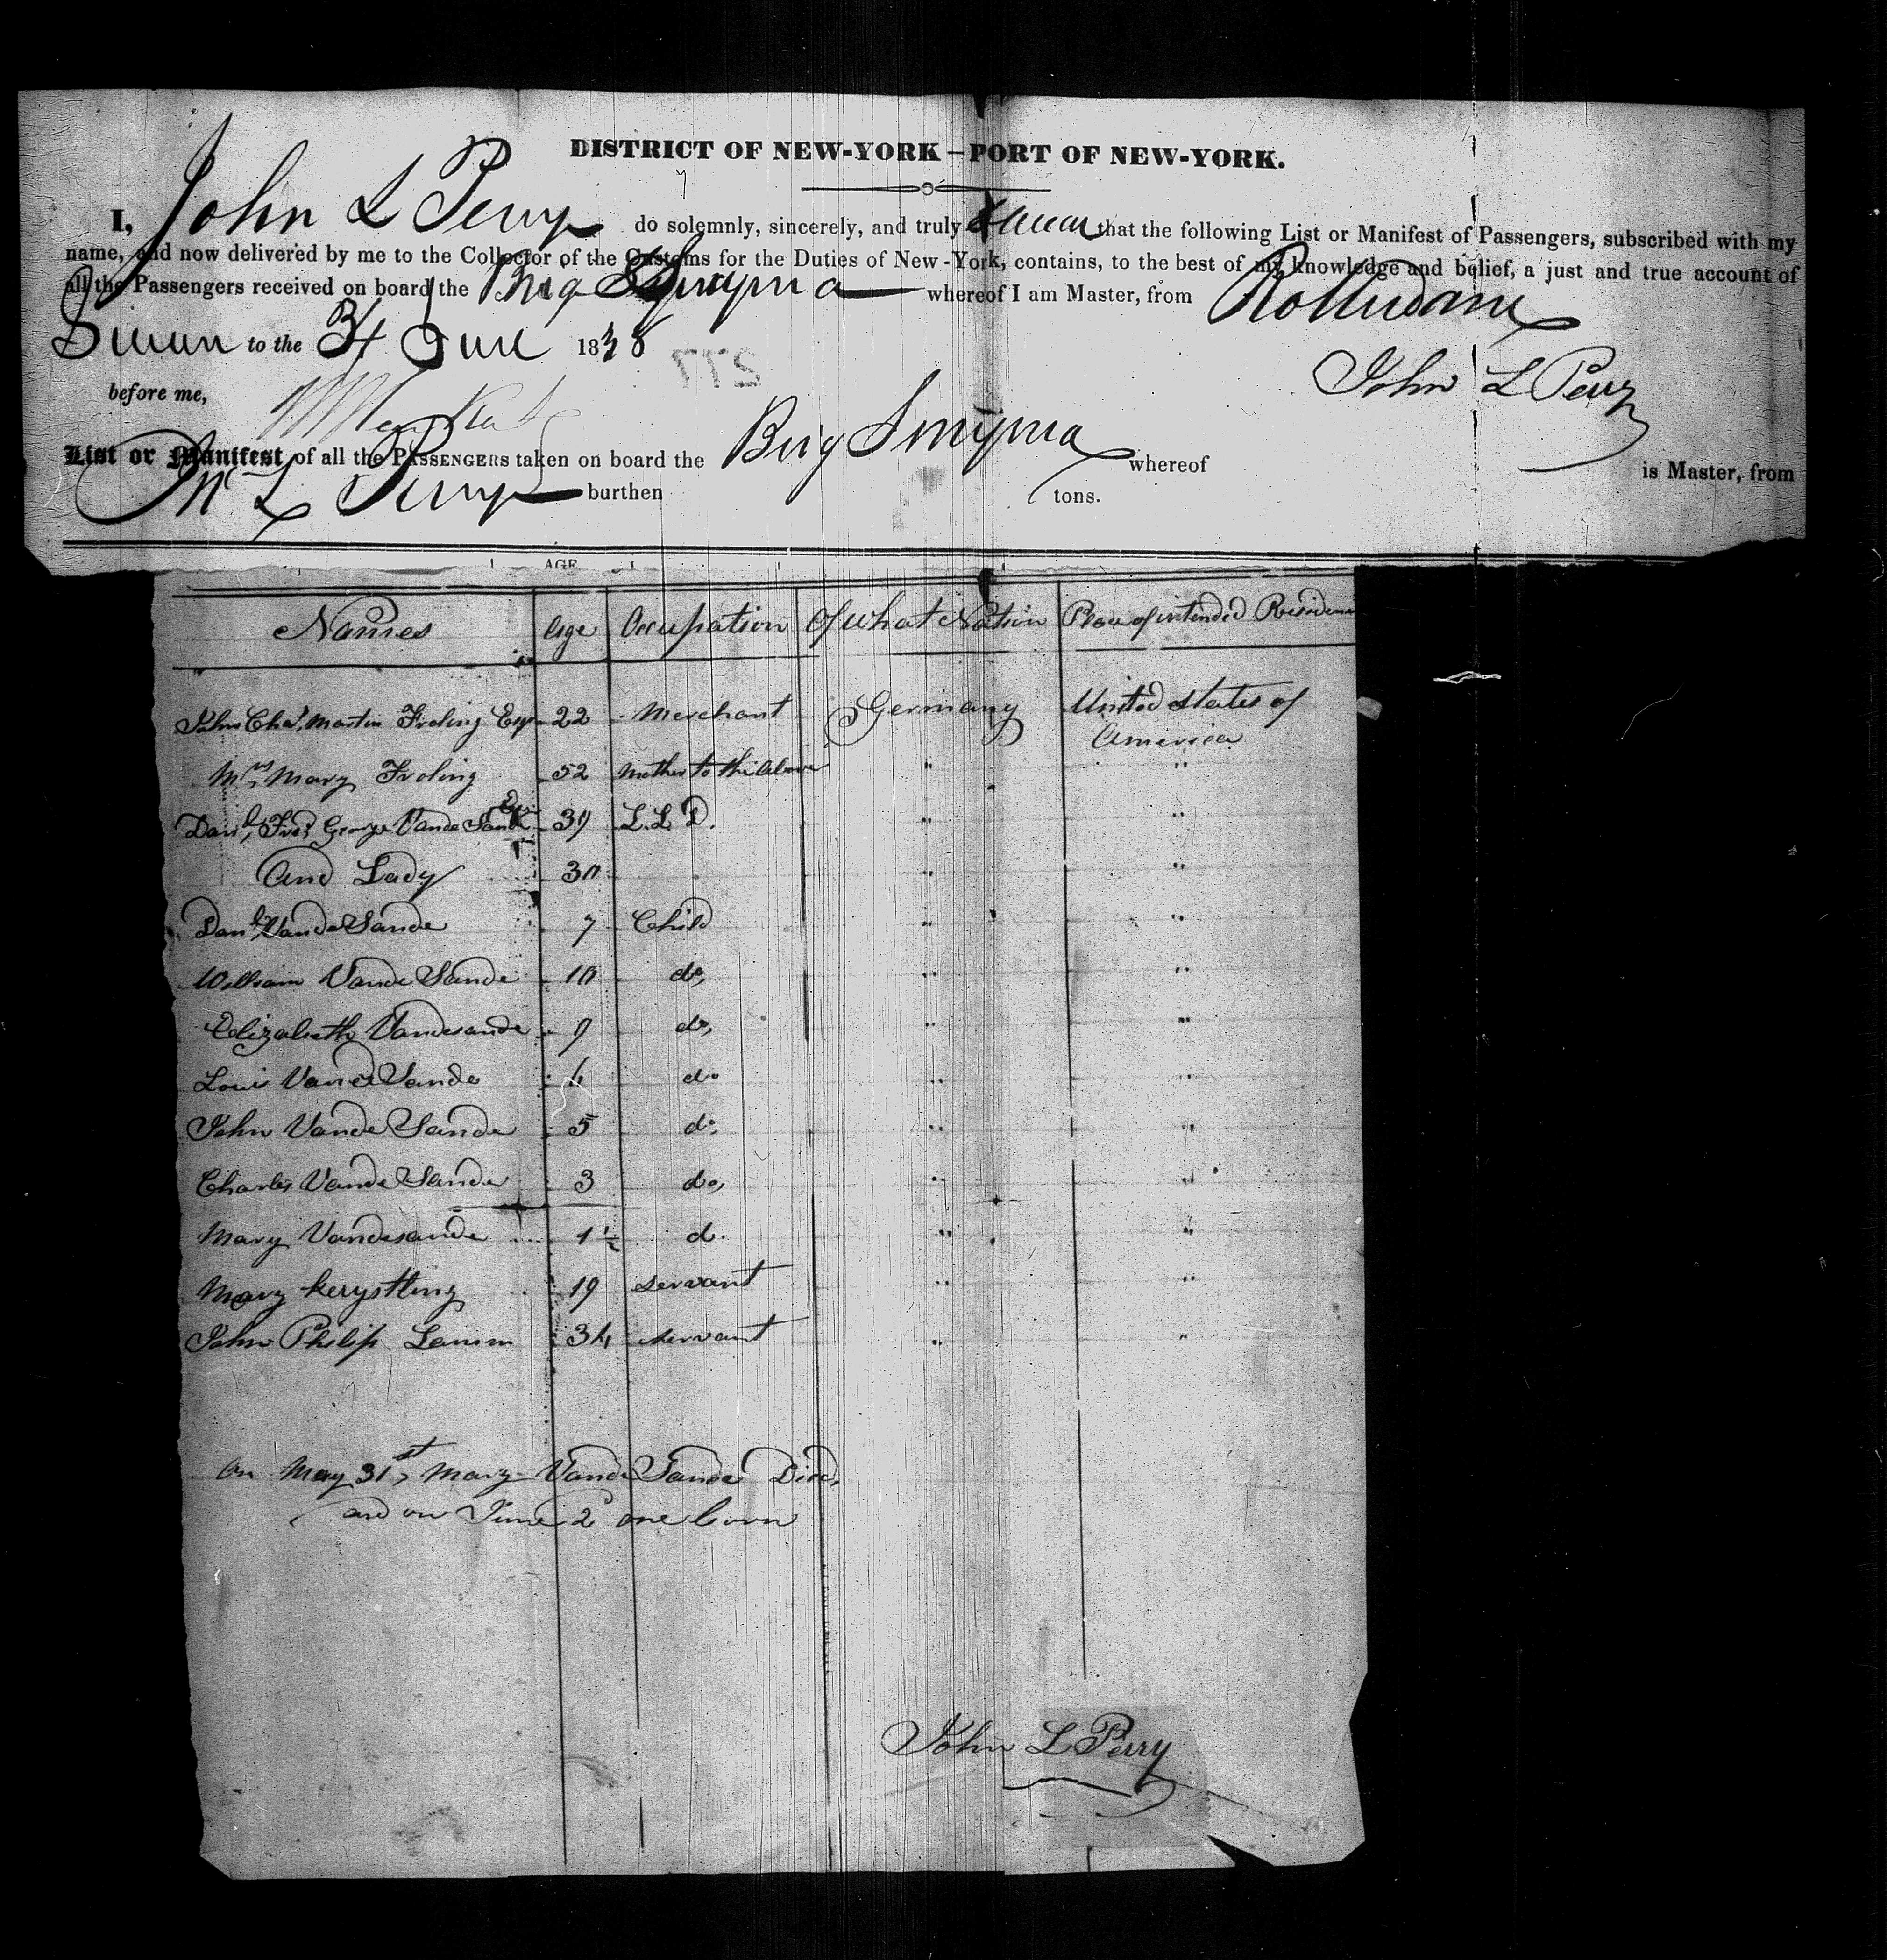 DISTRICT OF NEW-YORK—PORT OF NEW-YORK.
I, John L Perry do solemnly, sincerely, and truly Swear that the following List or Manifest of Passengers, subscribed with my
name, and now delivered by me to the Collector of the Customs for the Duties of New-York, contains, to the best of my knowledge and belief, a just and true account of
all the Passengers received on board the Brig Smyrna whereof I am Master, from Rotterdam
Sworn to the 4 June 1838
277
John L Perry
before me,
List or Manifest of all the PASSENGERS taken on board the Brig Smyrna whereof
is Master, from
Jn L Perry burthen tons.
AGE
Names Age Occupation Of what Nation Place of intended Residence
John Chas, Martin Froling Esqr 22 Merchant Germany United States of
America
Mrs, Mary Froling 52 Mother to the above " "
Danl, Fredk George Vande Sande Esq 39 L.L.D. " "
And Lady 30 " "
Danl, Vande Sande 7 Child " "
William Vande Sande 10 do, " "
Elizabeth Vandesande 9 do, " "
Louis Vande Sande 6 do " "
John Vande Sande 5 do, " "
Charles Vande Sande 3 do, " "
Mary Vandesande 1½ d. " "
Mary Kerystling 19 servant " "
John Philip Lamm 34 servant " "
On May 31st, Mary Vande Sande Died,
and on June 2d one born
John L Perry